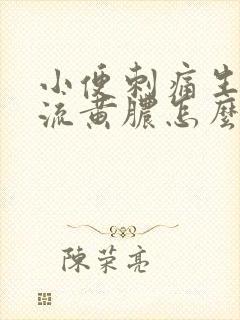 小便刺痛生
流黄膿怎麼
陳荣亮